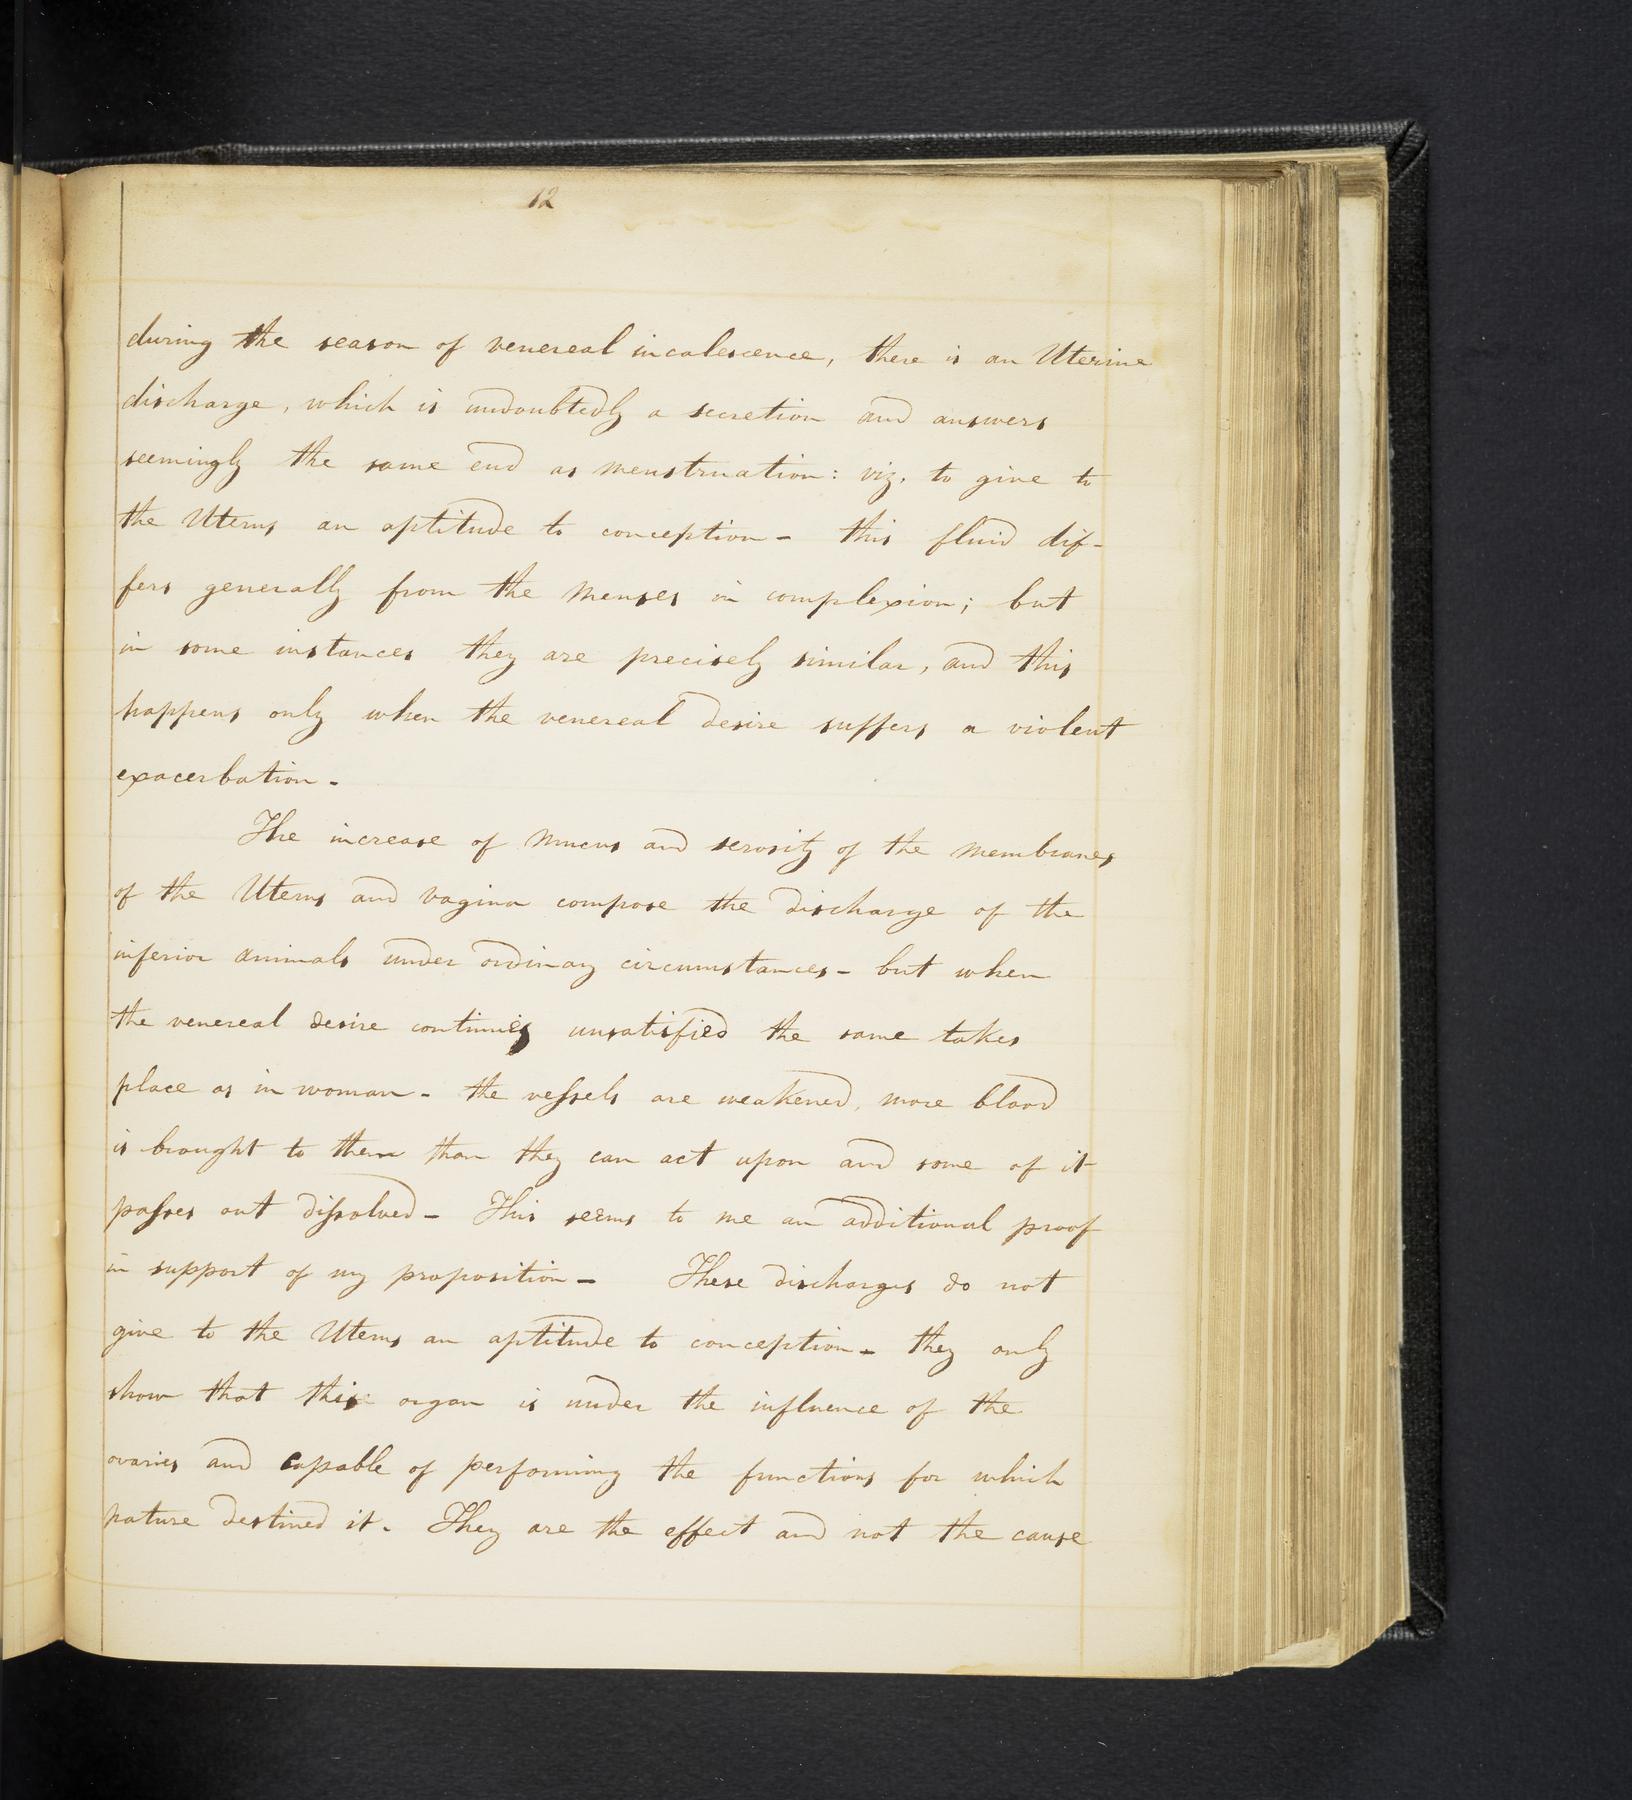 12
during the season of venereal incalescence, there is an Uterine
discharge, which is undoubtedly a secretion and answers
seemingly the same end as menstruation: viz. to give to
the Uterus an aptitude to conception - this fluid dif-
fers generally from the Menses in complexion; but
in some instances they are precisely similar, and this
happens only when the venereal desire suffers a violent
exacerbation -
The increase of Mucus and serosity of the Membranes
of the Uterus and vagina compose the discharge of the
inferior animals under ordinary circumstances - but when
the venereal desire continues unsatisfied the same takes
place as in woman - the vessels are weakened, more blood
is brought to them than they can act upon and some of it
passes out dissolved - This seems to me an additional proof
in support of my proposition - These discharges do not
give to the Uterus an aptitude to conception - they only
show that this organ is under the influence of the
ovaries and capable of performing the functions for which
nature destined it. They are the effect and not the cause